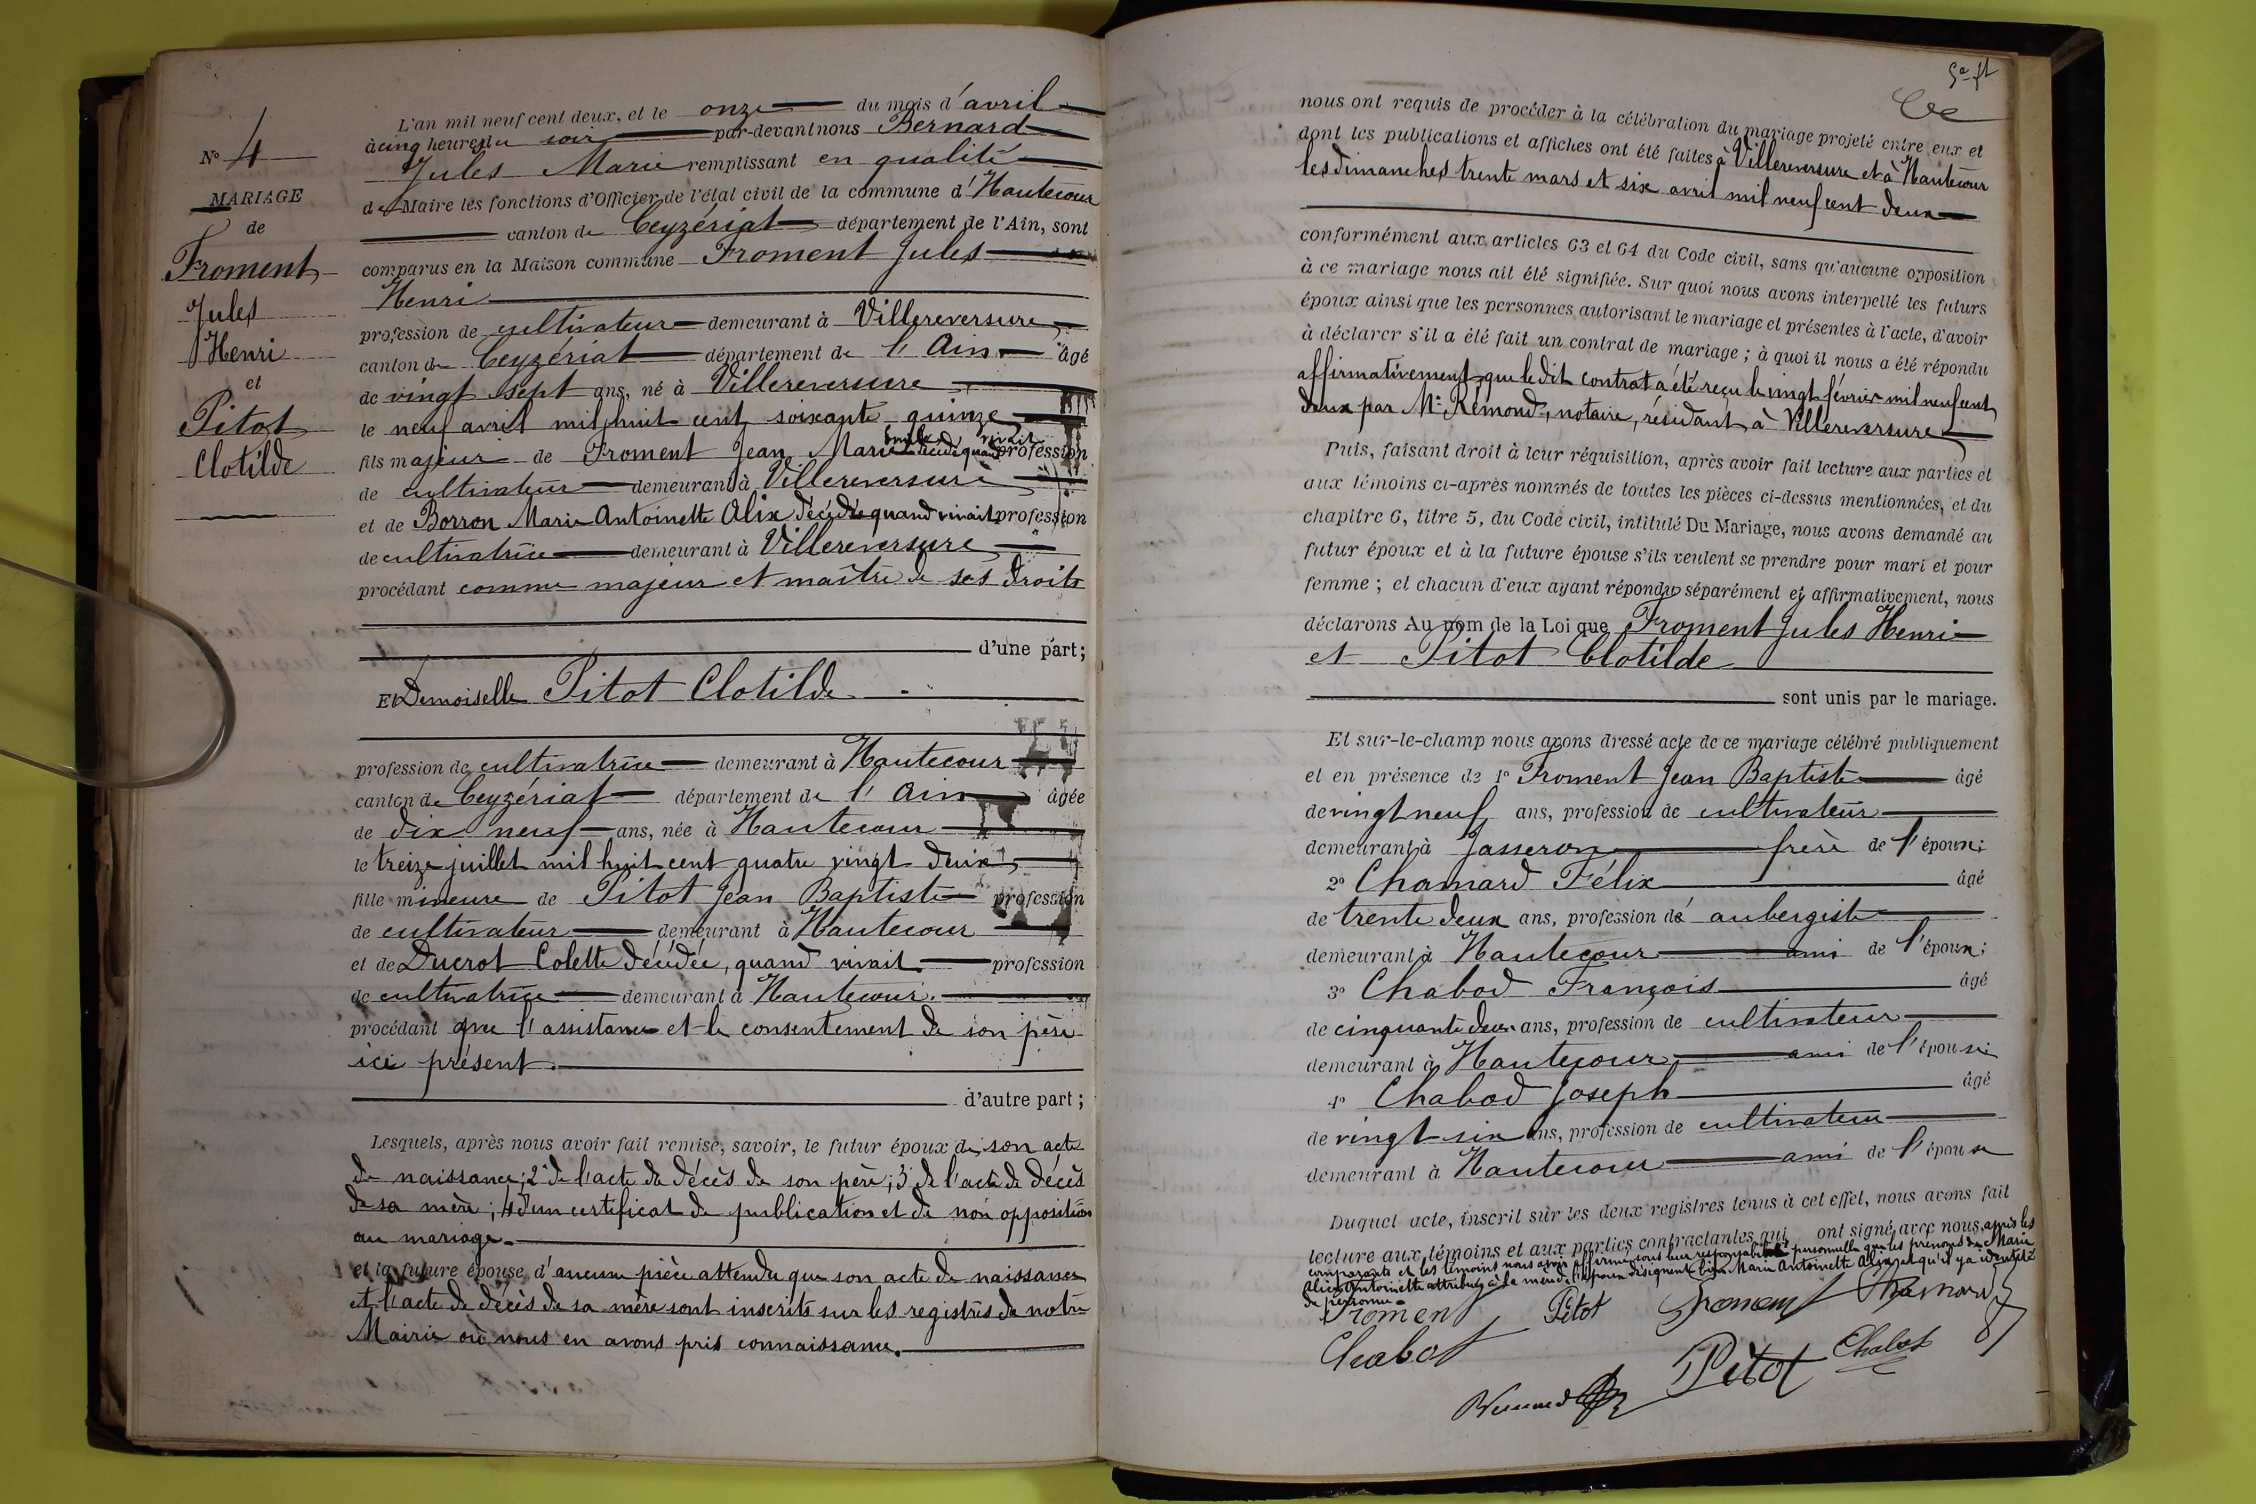 N° 4
MARIAGE
de
Froment
Jules
Henri
et
Pitot
Clotilde
L'an mil neuf cent deux, et le onze du mois d'avril
à cinq heures du soir par-devant nous Bernard
Jules Marie remplissant en qualité
de Maire les fonctions d'Officier de l'état civil de la commune d'Hautecour
canton de Ceyzériat département de l'Ain, sont
comparus en la Maison commune Froment Jules
Henri
profession de cultivateur demeurant à Villereversure
canton de Ceyzériat département de l'Ain âgé
de vingt sept ans, né à Villereversure
le neuf avril mil huit cent soixante quinze
fils majeur de Froment Jean Marie décédé quand vivait profession
de cultivateur demeurant à Villereversure
et de Borron Marie Antoinette Alix décédée quand vivait profession
de cultivatrice demeurant à Villereversure
procédant comme majeur et maître de ses droits
d'une part;
Et Demoiselle Pitot Clotilde
profession de cultivatrice demeurant à Hautecour
canton de Ceyzériat département de l'Ain âgée
de dix neuf ans, née à Hautecour
le treize juillet mil huit cent quatre vingt deux
fille mineure de Pitot Jean Baptiste profession
de cultivateur demeurant à Hautecour
et de Ducrot Colette décédée, quand vivait profession
de cultivatrice demeurant à Hautecour.
procédant avec l'assistance et le consentement de son père
ici présent.
d'autre part;
Lesquels, après nous avoir fait remise, savoir, le futur époux de son acte
de naissance; 2° de l'acte de décès de son père; 3° de l'acte de décès
de sa mère; 4° d'un certificat de publication et de non opposition
au mariage.
et la future épouse d'aucune pièce attendu que son acte de naissance
et l'acte de décès de sa mère sont inscrits sur les registres de notre
Mairie où nous en avons pris connaissance.
nous ont requis de procéder à la célébration du mariage projeté entre eux et
dont les publications et affiches ont été faites à Villereversure et à Hautecour
les dimanches trente mars et six avril mil neuf cent deux
conformément aux articles 63 et 64 du Code civil, sans qu'aucune opposition
à ce mariage nous ait été signifiée. Sur quoi nous avons interpellé les futurs
époux ainsi que les personnes autorisant le mariage et présentes à l'acte, d'avoir
à déclarer s'il a été fait un contrat de mariage; à quoi il nous a été répondu
affirmativement, que ledit contrat a été reçu le vingt février mil neuf cent
deux par Me Rémond, notaire, résidant à Villereversure
Puis, faisant droit à leur réquisition, après avoir fait lecture aux parties et
aux témoins ci-après nommés de toutes les pièces ci-dessus mentionnées, et du
chapitre 6, titre 5, du Code civil, intitulé Du Mariage, nous avons demandé au
futur époux et à la future épouse s'ils veulent se prendre pour mari et pour
femme; et chacun d'eux ayant répondu séparément et affirmativement, nous
déclarons Au nom de la Loi que Froment Jules Henri
et Pitot Clotilde
sont unis par le mariage.
Et sur-le-champ nous avons dressé acte de ce mariage célébré publiquement
et en présence de 1° Froment Jean Baptiste âgé
de vingt neuf ans, profession de cultivateur
demeurant à Jasseron frère de l'époux;
2° Chamard Félix âgé
de trente deux ans, profession de aubergiste
demeurant à Hautecour ami de l'époux;
3° Chabod François âgé
de cinquante deux ans, profession de cultivateur
demeurant à Hautecour ami de l'épouse
4° Chabod Joseph âgé
de vingt six ans, profession de cultivateur
demeurant à Hautecour ami de l'épouse
Duquel acte, inscrit sur les deux registres tenus à cet effet, nous avons fait
lecture aux témoins et aux parties contractantes qui ont signé avec nous, après les
comparants et les témoins nous avoir affirmé sous leur responsabilité personnelle que les prénoms de Marie
Alix Antoinette attribués à la mère de l'époux désignent bien Marie Antoinette Alix et qu'il y a identité
de personne.
Froment Pitot Froment Chamard
Chabot Pitot Chabot
Bernard